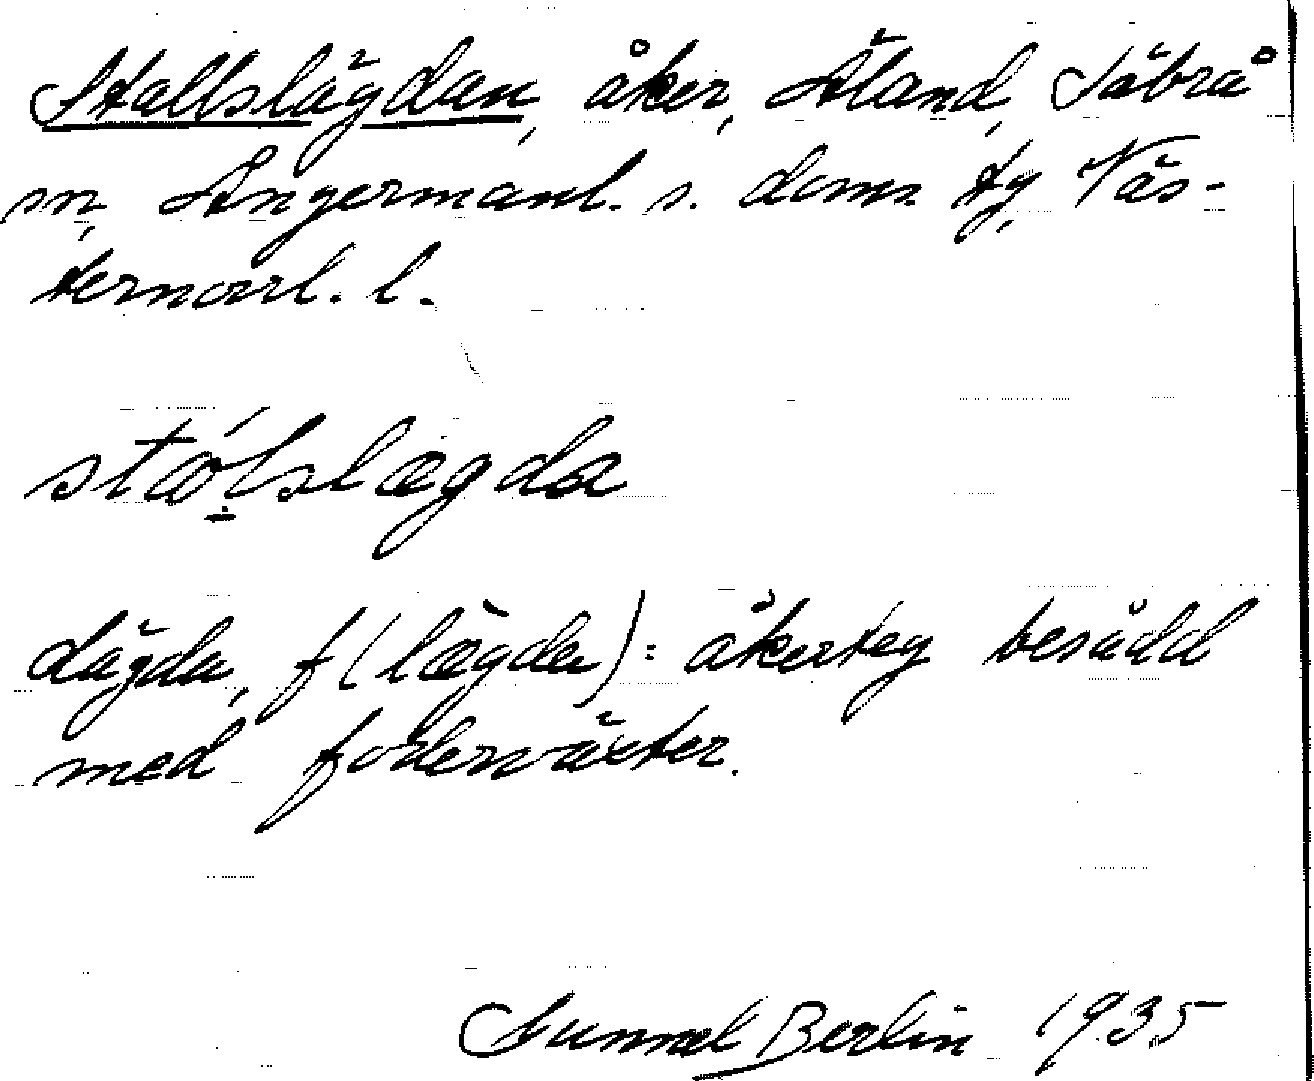 Stallslägdan, åker, Äland, Säbrå
sn, Ångermanl. s. doms. tg, Väs-
ternorrl. l.
stáḷslægda
Lägda, f (lægda): åkerteg besådd
med foderväxter.
Gunnel Berlin 1935